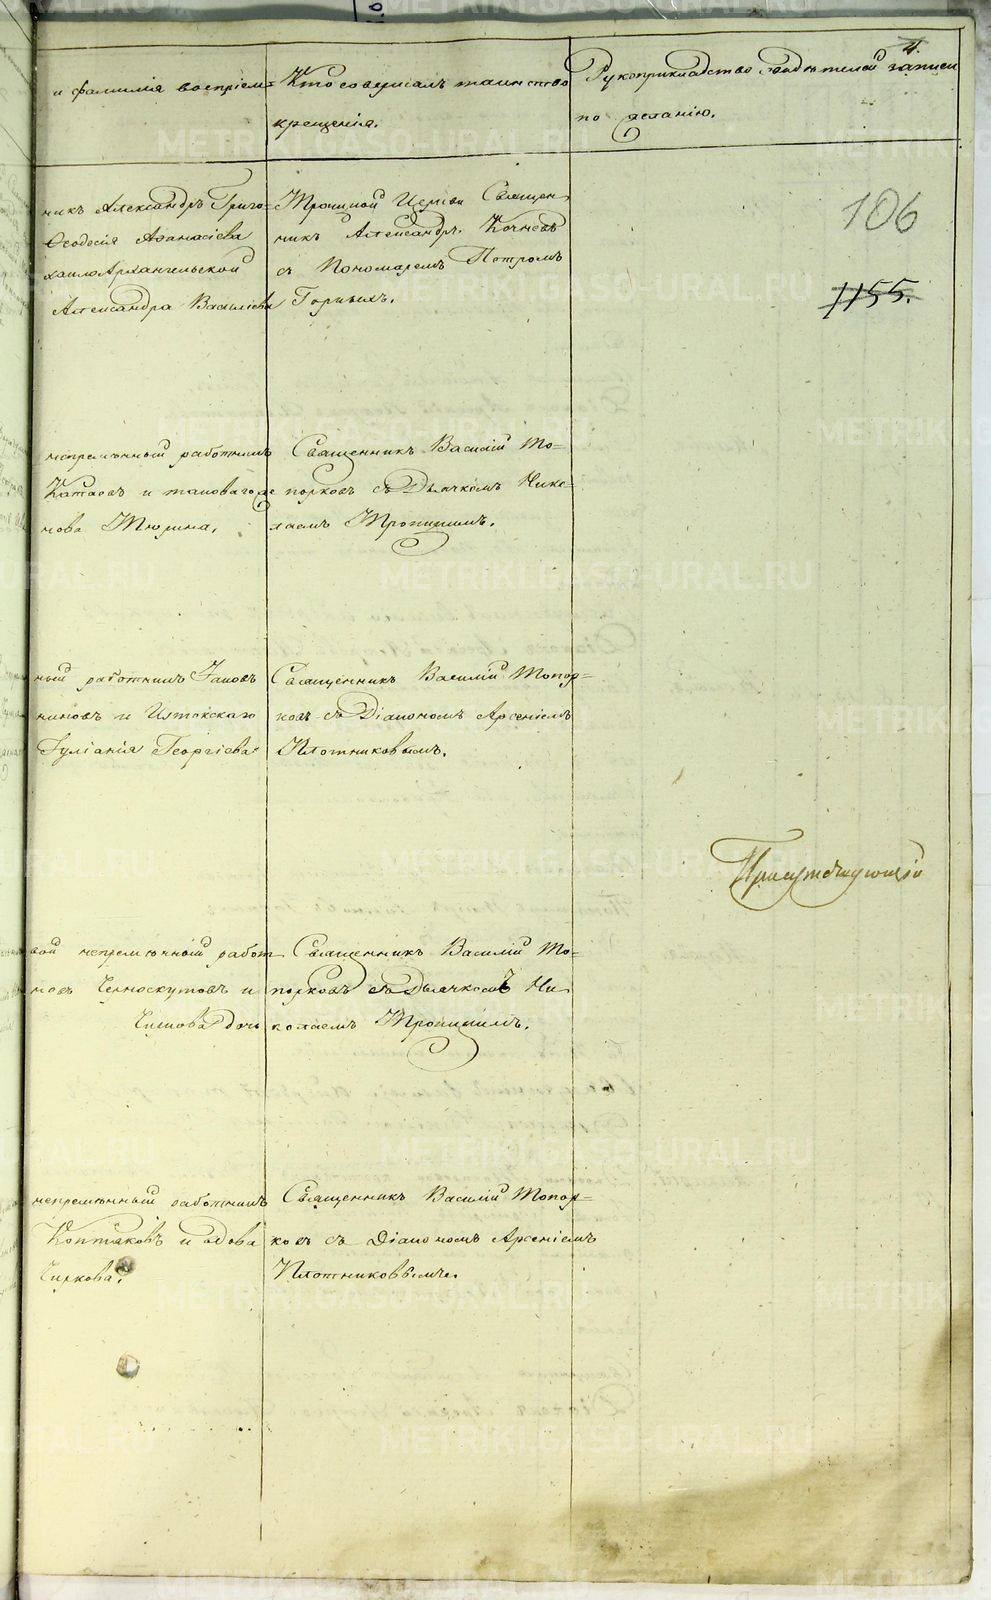 и фамилія воспріем=
Кто совершалъ таинство
крещенія.
Рукоприкладство свидѣтелей записи
по желанію.
4.
106
1155.
никъ Александръ Григо=
Ѳеодосія Аѳанасіева
хаило Архангельской
Александра Василіева
Троицкой Церкви Священ=
никъ Александръ Кочневъ
съ Пономаремъ Петромъ
Горныхъ.
непремѣнный работникъ
Катаевъ и таковаго же
нова Тюрина.
Священникъ Василій То=
порковъ съ Дьячкомъ Нико=
лаемъ Тропинымъ.
ный работникъ Іаковъ
Іуліанія Георгіева
Священникъ Василій Топор=
ковъ съ Діакономъ Арсеніемъ
Плотниковымъ.
Присутствующій
вой непремѣнный работ
новъ Черноскутовъ и
дочь
Священникъ Василій То=
порковъ съ Дьячкомъ Ни
колаемъ Тропинымъ.
непремѣнный работникъ
Коптяковъ и вдова
Чиркова.
Священникъ Василій Топор=
ковъ съ Діакономъ Арсеніемъ
Плотниковымъ.
METRIKI.GASO-URAL.RU